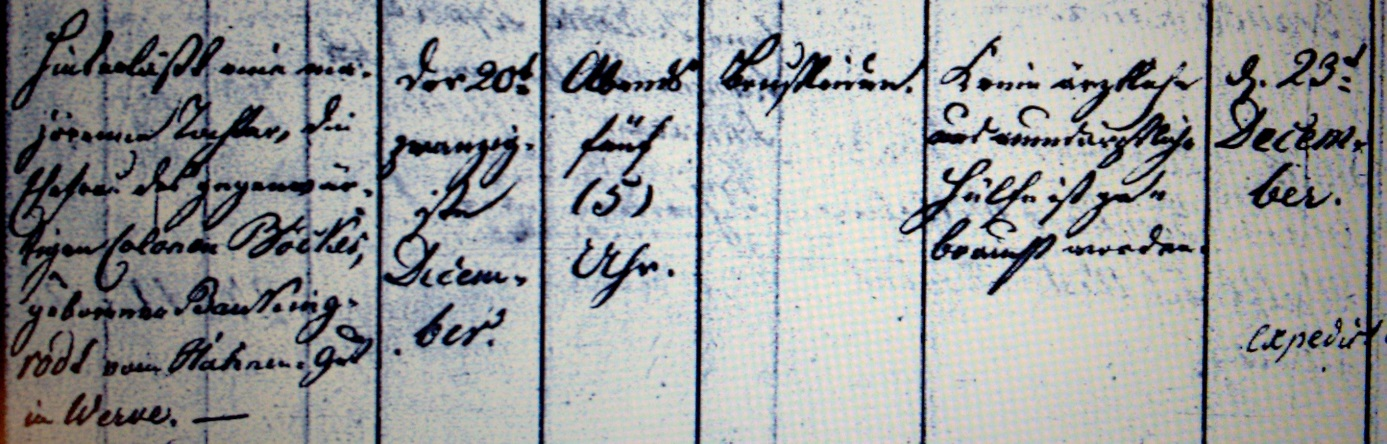 Hinterläßt eine ma-
jorenne Tochter, die
Ehefrau des gegenwär-
tigen Colonen Böckes,
geborenne Banking-
rodt vom Hähnen-Gut
in Werve. —
Der 20t.
zwanzig-
ste
Decem-
ber.
Abends
fünf
(5)
Uhr.
Brustleiden.
Keine ärztliche
und wundärztliche
Hülfe ist ge-
braucht worden.
d. 23t.
Decem-
ber.
expedirt